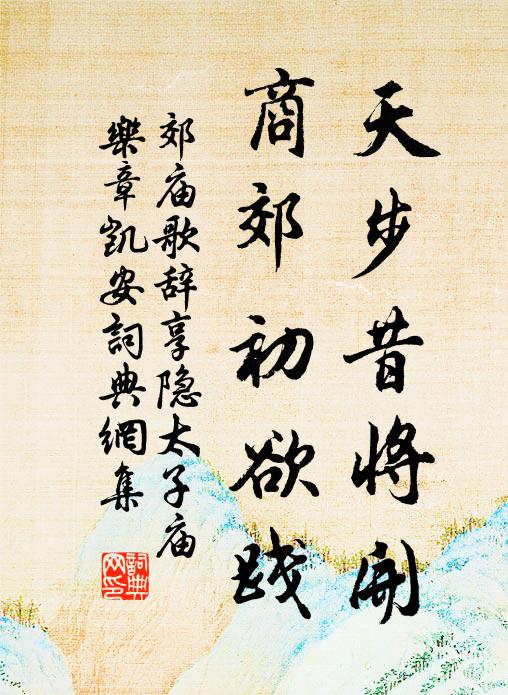 天步昔将开
商郊初欲践
郊庙歌辞享隐太子庙
樂章凯安詞典網集
詞典网印